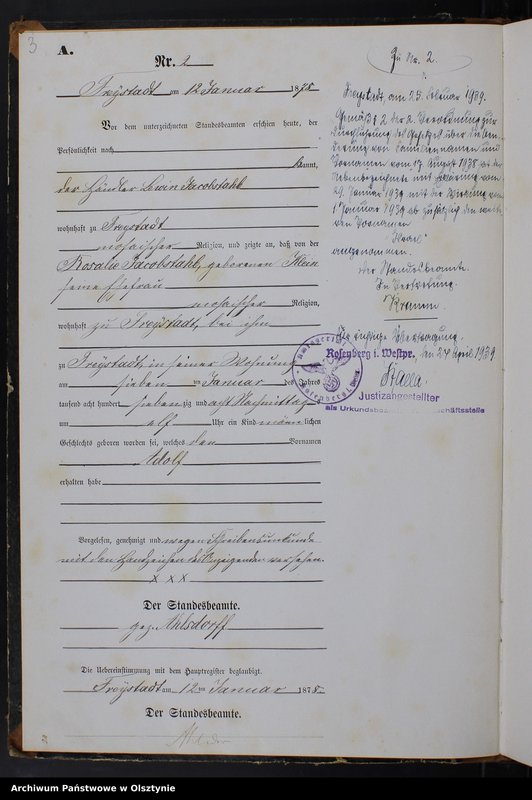 3
A.
Nr. 2
Freystadt am 12 Januar 1878
Vor dem unterzeichneten Standesbeamten erschien heute, der
Persönlichkeit nach
kannt,
der Händler Lewin Jacobstahl
wohnhaft zu Freystadt
mosaischer Religion, und zeigte an, daß von der
Rosalie Jacobstahl, geborenen Klein
seine Ehefrau
mosaischer Religion,
wohnhaft zu Freystadt, bei ihm
zu Freystadt, in seiner Wohnung
am sieben ten Januar des Jahres
tausend acht hundert siebenzig und acht Nachmittag
um elf Uhr ein Kind männlichen
Geschlechts geboren worden sei, welches den Vornamen
Adolf
erhalten habe
Vorgelesen, genehmigt und wegen Schreibensunkunde
mit dem Handzeichen des Anzeigenden versehen.
x x x
Der Standesbeamte.
gez. Ahlsdorff
Die Uebereinstimmung mit dem Hauptregister beglaubigt.
Freystadt am 12 ten Januar 1878
Der Standesbeamte.
Zu Nr. 2.
Freystadt, am 23. Februar 1939.
Gemäß § 2 der 2. Verordnung zur
Durchführung des Gesetzes über die Än-
derung von Familiennamen und
Vornamen vom 17. August 1938 hat der
Nebenbezeichnete mit Erklärung vom
29. Januar 1939 mit der Wirkung vom
1. Januar 1939 ab zusätzlich den weite-
ren Vornamen
"Israel"
angenommen.
Der Standesbeamte.
In Vertretung:
Die richtige Übertragung.
Rosenberg i. Westpr., den 24 April 1939
Justizangestellter
als Urkundsbeamter der Geschäftsstelle
Archiwum Państwowe w Olsztynie